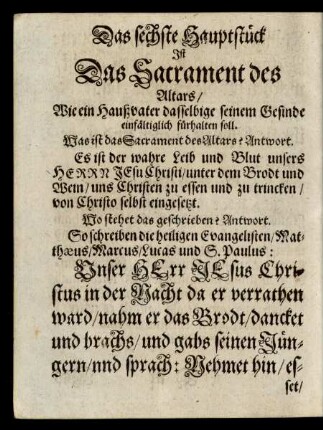 Das sechste Hauptstück
Ist
Das Sacrament des
Altars/
Wie ein Haußvater dasselbige seinem Gesinde
einfältiglich fürhalten soll.
Was ist das Sacrament des Altars? Antwort.
Es ist der wahre Leib und Blut unsers
HERRN JEsu Christi/unter dem Brodt und
Wein/uns Christen zu essen und zu trincken/
von Christo selbst eingesetzt.
Wo stehet das geschrieben? Antwort.
So schreiben die heiligen Evangelisten/Mat-
thæus/Marcus/Lucas und S. Paulus:
Unser HErr JEsus Chri-
stus in der Nacht da er verrathen
ward/nahm er das Brodt/dancket
und brachs/und gabs seinen Jün-
gern/nnd sprach: Nehmet hin/es-
set/